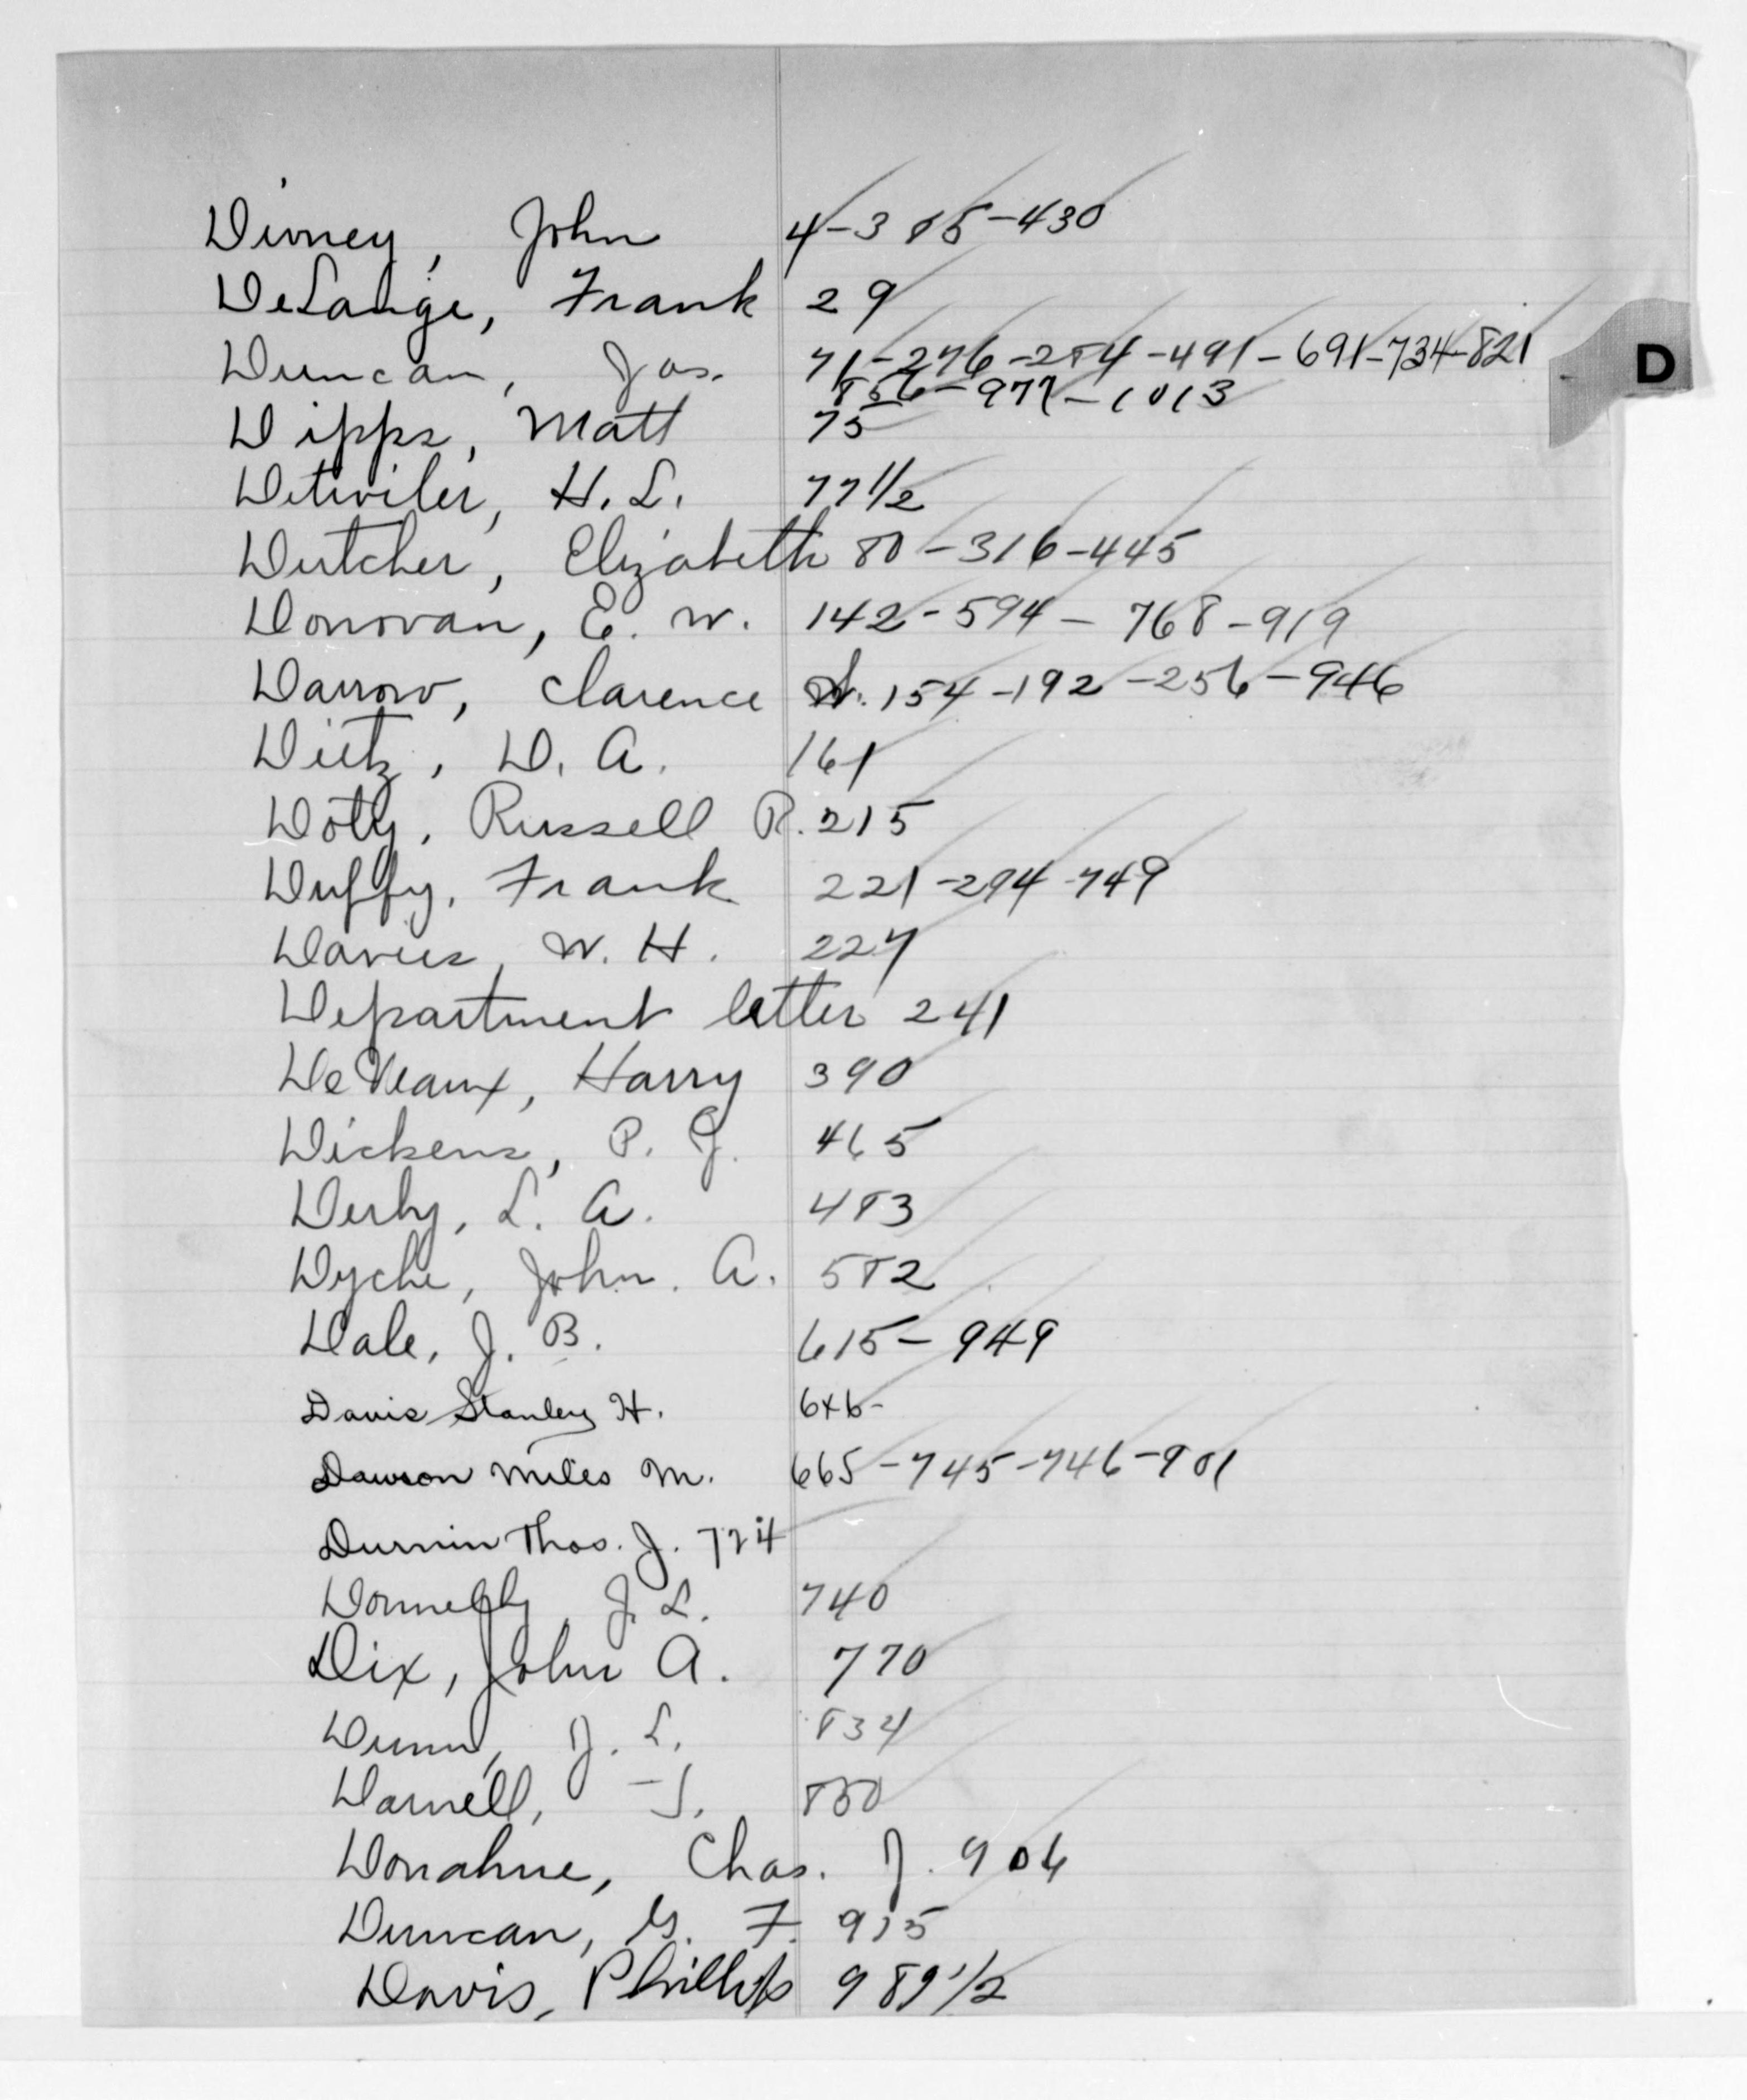 Divney, John 4-385-430
DeLange, Frank 29
Duncan, Jas. 71-276-284-491-691-734-821
D
856-977-1013
Dipps, Matt 75
Detwiler, H. L. 77 1/2
Dutcher, Elizabeth 80-316-445
Donovan, E. W. 142-594-768-919
Darrow, Clarence S. 154-192-256-946
Dietz, D. A. 161
Doty, Russell R. 215
Duffy, Frank 221-294-749
Davies, W. H. 227
Department letter 241
DeVeaux, Harry 390
Dickens, P. J. 465
Derby, L. A. 483
Dyche, John. A. 582
Dale, J. B. 615-949
Davis Stanley H.
Dawson Miles M. 665-745-746-901
Durnin Thos. J. 724
Donnelly, J. L. 740
Dix, John A. 770
Dunn, J. L. 834
Darnell, - J. 850
Donahue, Chas. J. 906
Duncan, G. F. 915
Davis, Phillip 989 1/2